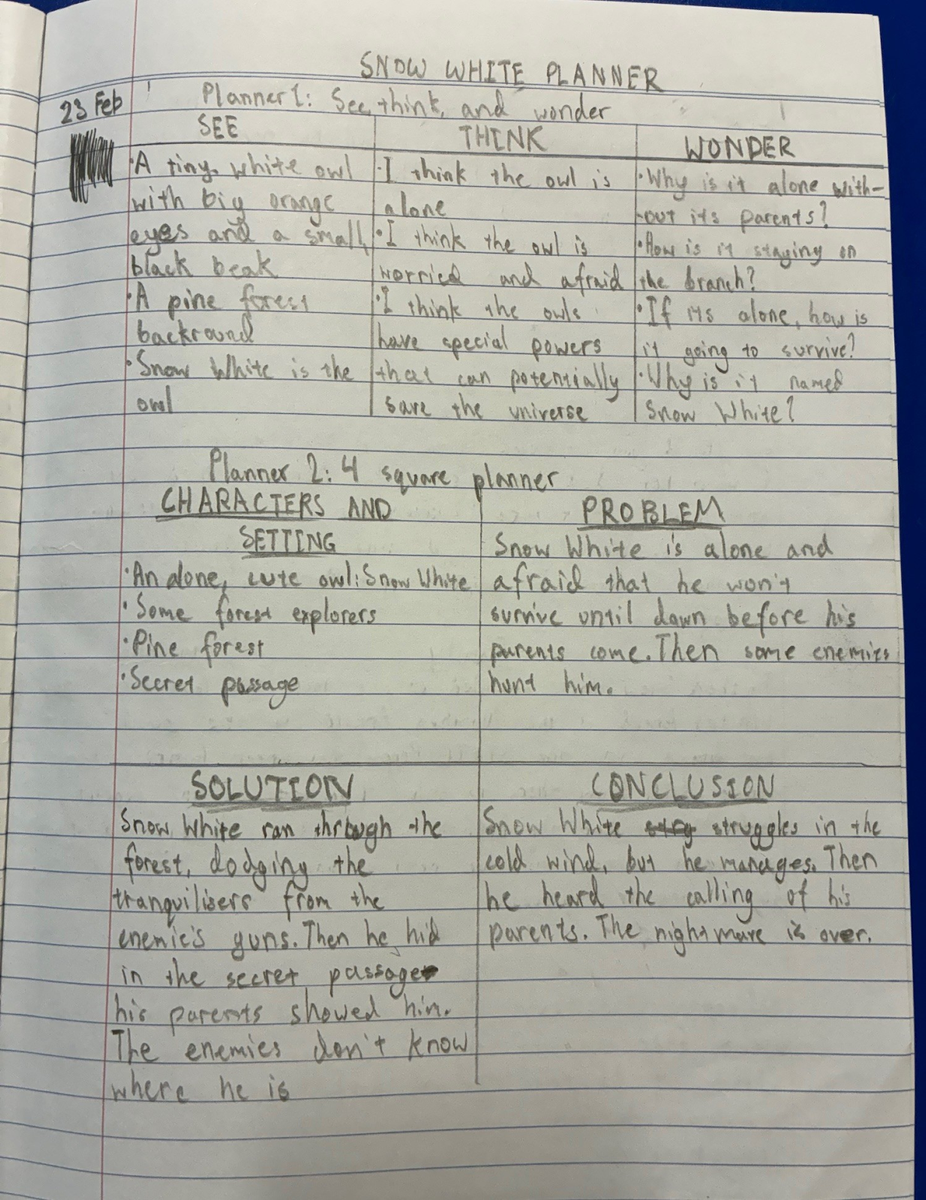 SNOW WHITE PLANNER
23 Feb
Planner 1: See, think, and wonder
SEE
A tiny, white owl
with big orange
eyes and a small,
black beak
A pine forest
backround
Snow White is the
owl
THINK
I think the owl is
alone
I think the owl is
worried and afraid
I think the owls
have special powers
that can potentially
save the universe
WONDER
Why is it alone with-
out its parents?
How is it staying on
the branch?
If its alone, how is
it going to survive?
Why is it named
Snow White?
Planner 2: 4 square planner
CHARACTERS AND
SETTING
An alone, cute owl: Snow White
Some forest explorers
Pine forest
Secret passage
PROBLEM
Snow White is alone and
afraid that he won't
survive until dawn before his
parents come. Then some enemies
hunt him.
SOLUTION
Snow White ran through the
forest, dodging the
tranquilisers from the
enemie's guns. Then he hid
in the secret passage
his parents showed him.
The enemies don't know
where he is
CONCLUSION
Snow White struggles in the
cold wind, but he manages. Then
he heard the calling of his
parents. The nightmare is over.